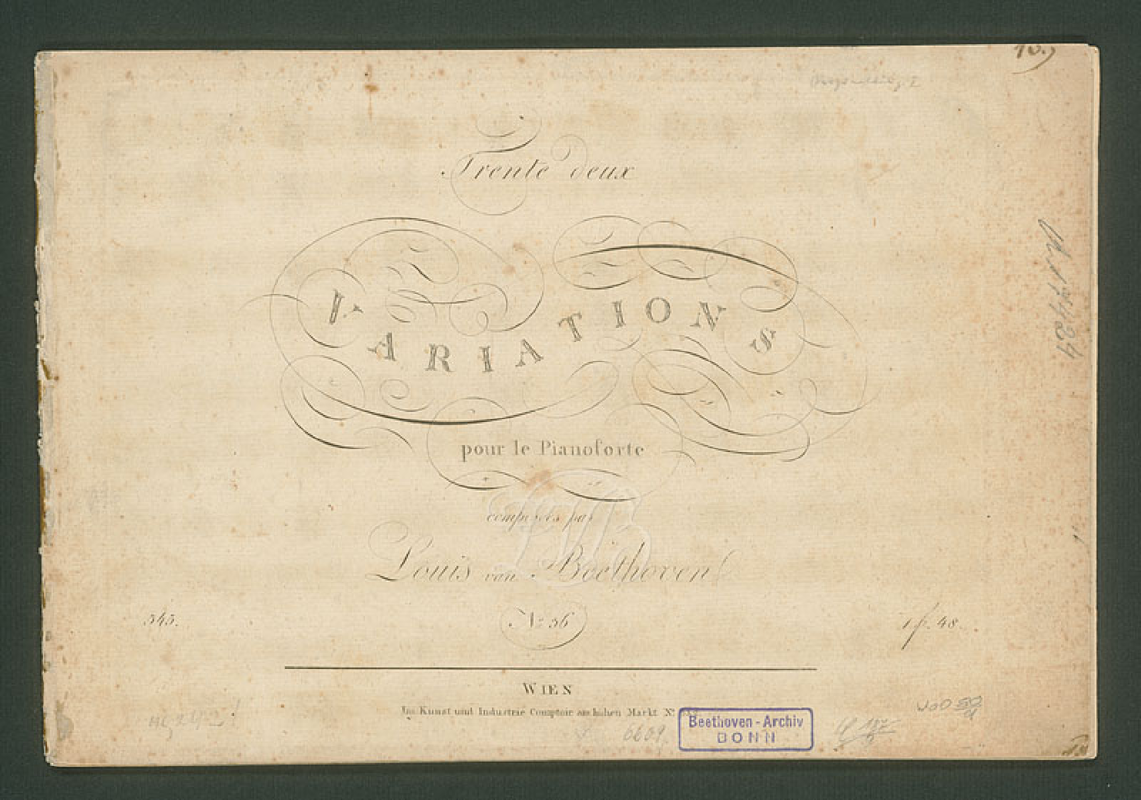 10.)
Trente deux
VARIATIONS
pour le Pianoforte
composées par
Louis van Beethoven
№ 36
545.
1 f. 48
WIEN
Im Kunst und Industrie Comptoir am hohen Markt N°
6609
Beethoven-Archiv
BONN